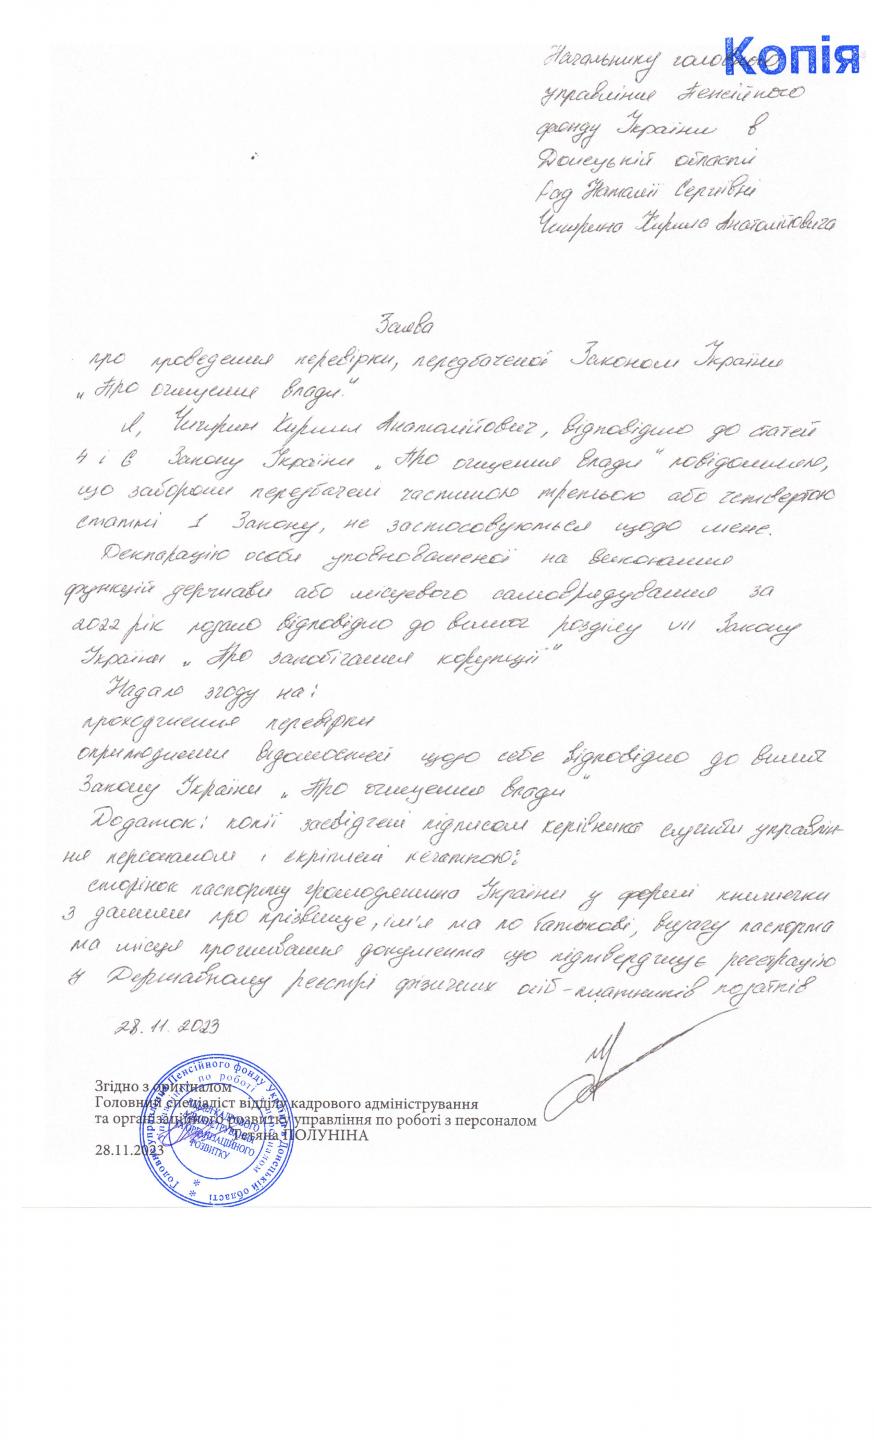 Копія
Начальнику головного
управління Пенсійного
фонду України в
Донецькій області
Рад Наталії Сергіївні
Чигрина Кирила Анатолійовича
Заява
про проведення перевірки, передбаченої Законом України
„Про очищення влади".
Я, Чигрин Кирилл Анатолійович, відповідно до статей
4 і 6 Закону України „Про очищення влади" повідомляю,
що заборони передбачені частиною третьою або четвертою
статті 1 Закону, не застосовуються щодо мене.
Декларацію особи уповноваженої на виконання
функцій держави або місцевого самоврядування за
2022 рік подано відповідно до вимог розділу VII Закону
України „Про запобігання корупції"
Надаю згоду на:
проходження перевірки
оприлюднення відомостей щодо себе відповідно до вимог
Закону України „Про очищення влади"
Додаток: копії засвідчені підписом керівника служби управлін-
ня персоналом і скріплені печаткою:
сторінок паспорту громадянина України у формі книжечки
з даними про прізвище, ім'я та по батькові, видачу паспорта
та місця проживання документа що підтверджує реєстрацію
у Державному реєстрі фізичних осіб-платників податків
28.11.2023
Згідно з оригіналом
Головний спеціаліст відділу кадрового адміністрування
та організаційного розвитку управління по роботі з персоналом
Тетяна ПОЛУНІНА
28.11.2023
Головне управління Пенсійного фонду України в Донецькій області
управління по роботі з персоналом
ВІДДІЛ КАДРОВОГО
АДМІНІСТРУВАННЯ
ТА ОРГАНІЗАЦІЙНОГО
РОЗВИТКУ